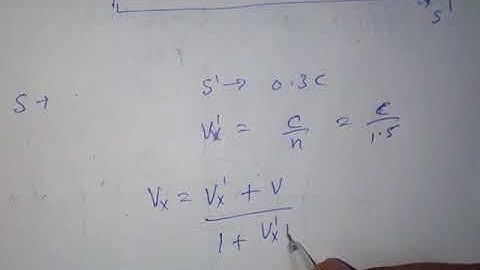 s'
S → S' → 0.3C
Vx' = C/n = C/1.5
Vx = Vx' + V / 1 + Vx'